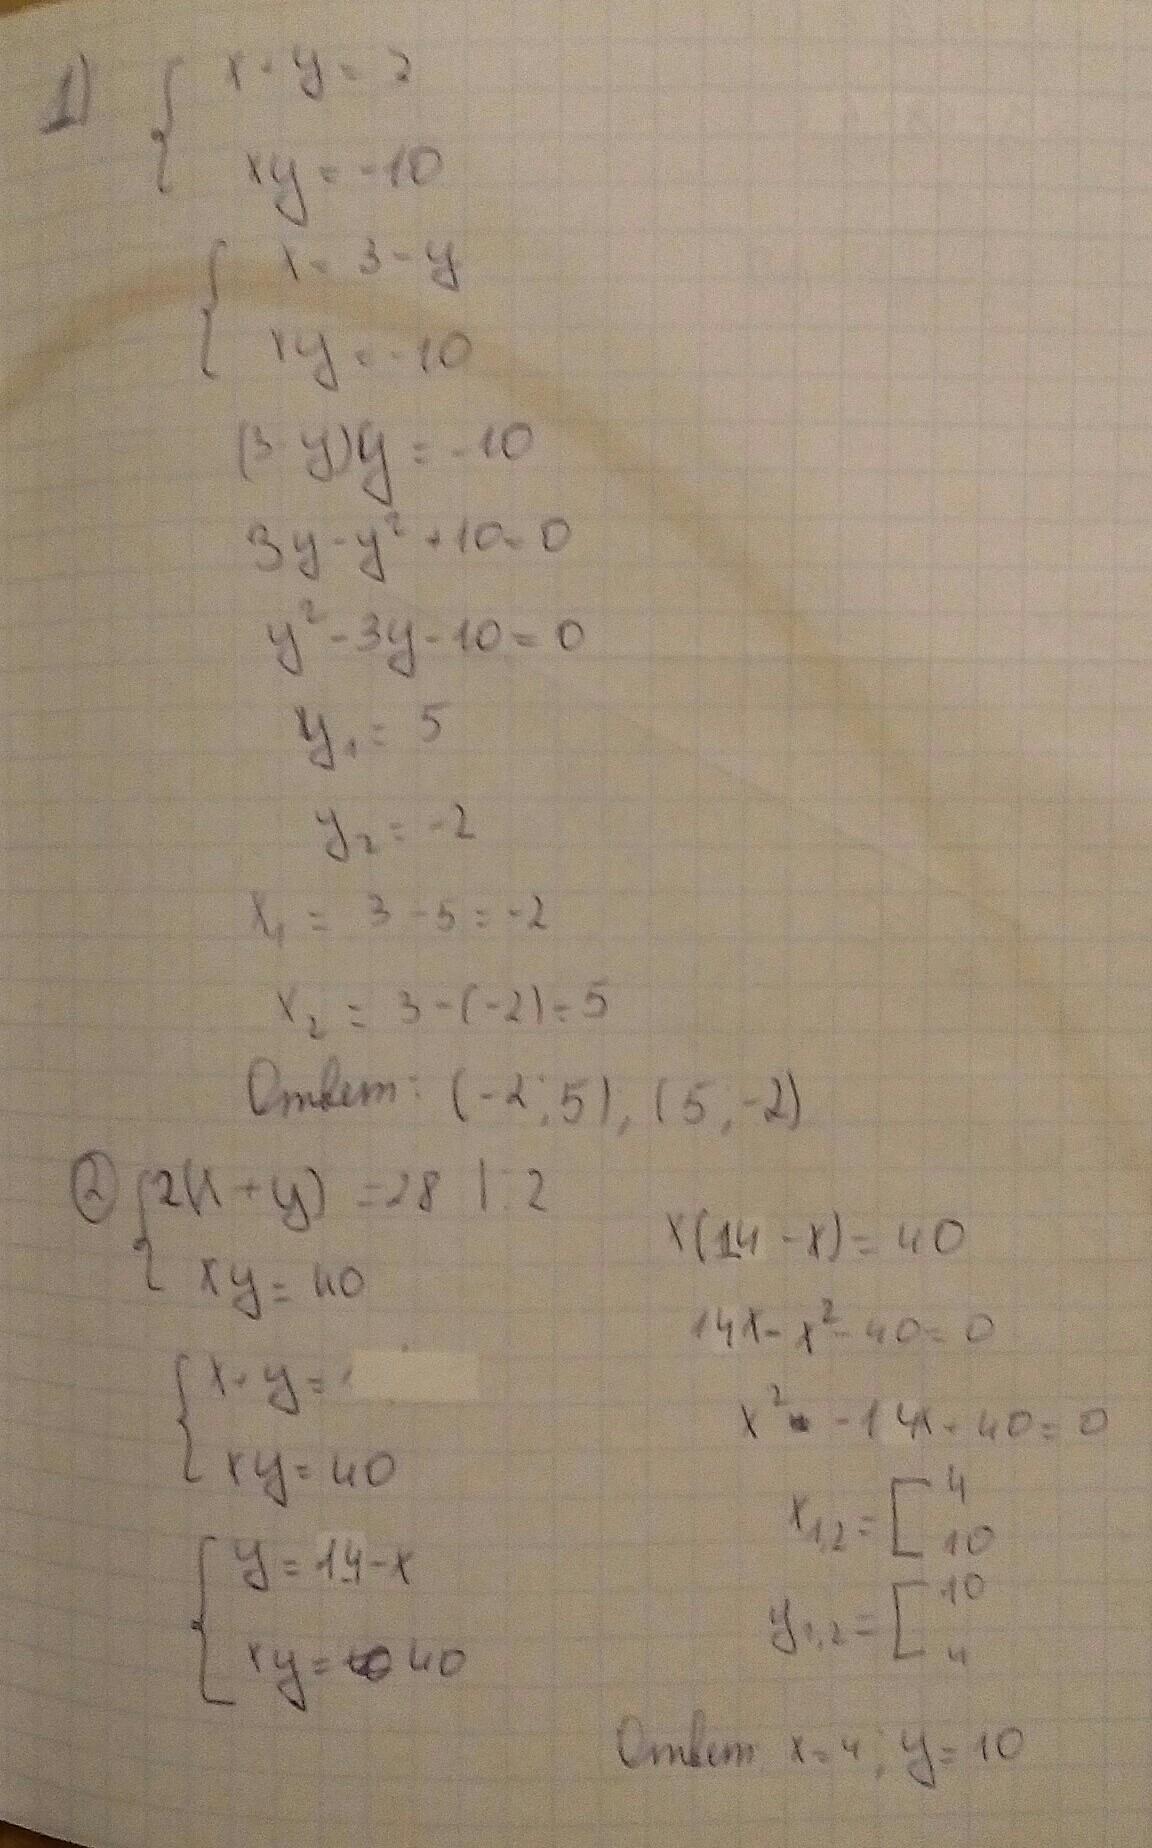 1) { x + y = 3
xy = -10
{ x = 3 - y
xy = -10
(3 - y)y = -10
3y - y² + 10 = 0
y² - 3y - 10 = 0
y₁ = 5
y₂ = -2
x₁ = 3 - 5 = -2
x₂ = 3 - (-2) = 5
Ответ: (-2; 5), (5; -2)
② { 2(x + y) = 28 | : 2
xy = 40
{ x + y =
xy = 40
{ y = 14 - x
xy = 40
x(14 - x) = 40
14x - x² - 40 = 0
x² - 14x + 40 = 0
x₁,₂ = [ 4
10
y₁,₂ = [ 10
4
Ответ: x = 4; y = 10